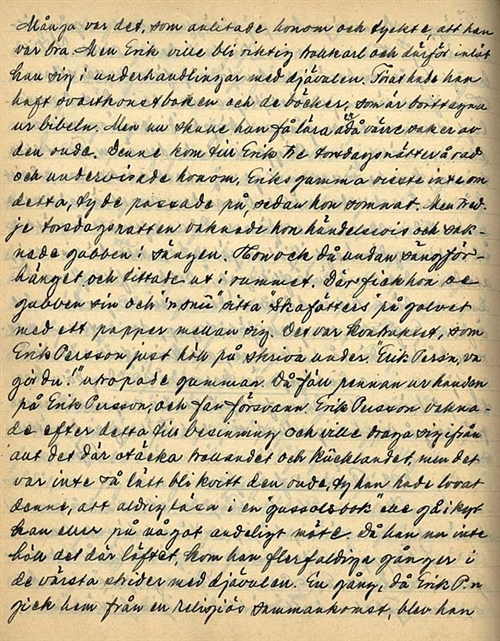 Många var det, som anlitade honom och tyckte, att han
var bra. Men Erik ville bli riktig trollkarl och därför inlät
han sig i underhandlingar med djävulen. Först hade han
haft svartkonstboken och de böcker, som är borttagna
ur bibeln. Men nu skulle han få lära ännu värre saker av
den onde. Denne kom till Erik tre torsdagsnätter å rad
och undervisade honom. Eriks gumma visste inte om
detta, ty de passade på, sedan hon somnat. Men tred-
je torsdagsnatten vaknade hon händelsevis och sak-
nade gubben i sängen. Hon vek då undan sängför-
hänget och tittade ut i rummet. Där fick hon se
gubben sin och "n snü" sitta skaföttes på golvet
med ett papper mellan sig. Det var kontraktet, som
Erik Persson just höll på skriva under. "Erik Persn, va
gör du!" utropade gumman. Då föll pennan ur handen
på Erik Persson, och fan försvann. Erik Persson vakna-
de efter detta till besinning och ville draga sig ifrån
allt det där otäcka trollandet och kücklandet, men det
var inte så lätt bli kvitt den onde, ty han hade lovat
denne, att aldrig läsa i en "gussolsbok" eller gå i kyr
kan eller på något andeligt möte. Då han nu inte
höll det där löftet, kom han flerfaldiga gånger i
de värsta strider med djävulen. En gång, då Erik P:n
gick hem från en religiös sammankomst, blev han